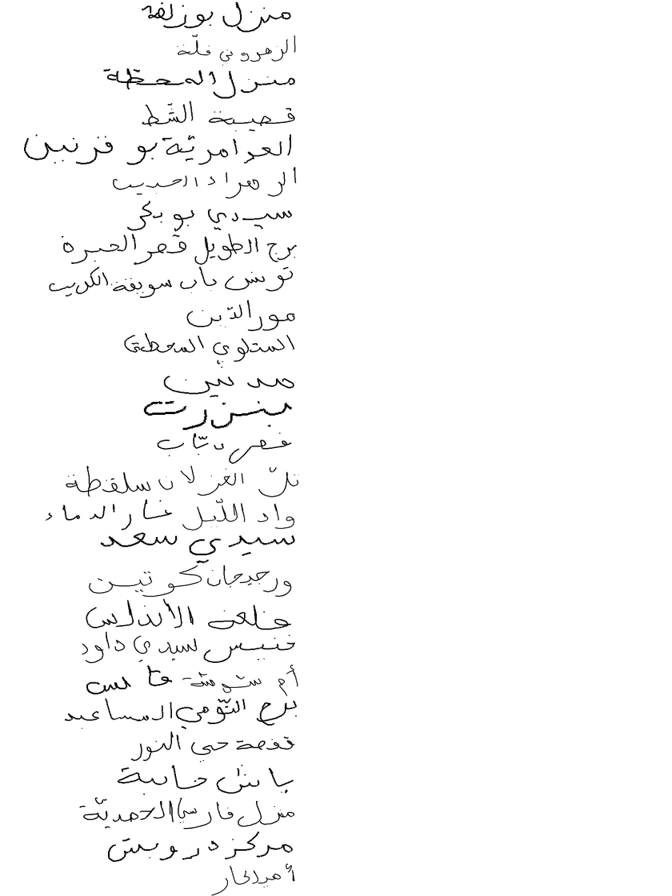 منزل بوزلفة
الزهروني فلّة
منزل المحطّة
قصيبة الشّط
العوامريّة بو قرنين
الزهراء الحبيب
سيدي بو بكر
برج الطويل قصر الحيرة
تونس باب سويقة الكريب
مور الدّين
المتلوي المحطّة
مدنين
بنزرت
قصر دبّاب
تلّ الغزلان سلقطة
واد اللّيل غار الدماء
سيدي سعد
ورجيجان كوتين
قلعة الأندلس
خنيس سيدي داود
أم شوشة قابس
برج التّومي المساعيد
قفصة حي النور
باش خانبة
منزل فارسي الأحمديّة
مركز درويش